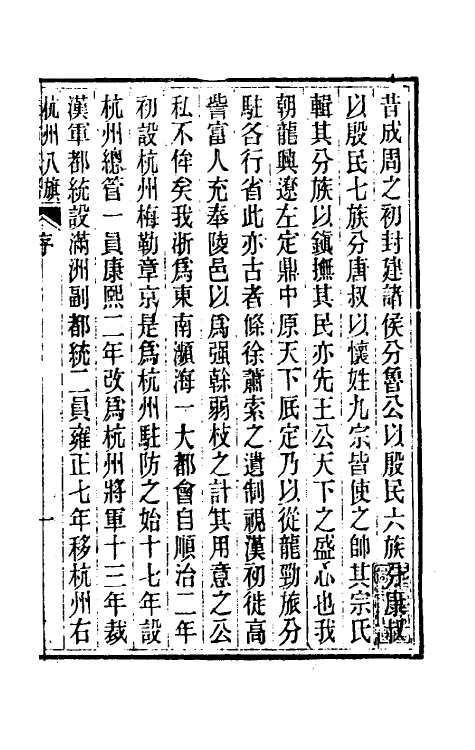 昔成周之初封建諸侯分魯公以殷民六族分康叔
以殷民七族分唐叔以懷姓九宗皆使之帥其宗氏
輯其分族以鎭撫其民亦先王公天下之盛心也我
朝龍興遼左定鼎中原天下厎定乃以從龍勁旅分
駐各行省此亦古者條徐蕭索之遺制視漢初徙高
訾富人充奉陵邑以爲强榦弱枝之計其用意之公
私不侔矣我浙爲東南瀕海一大都會自順治二年
初設杭州梅勒章京是爲杭州駐防之始十七年設
杭州總管一員康熙二年改爲杭州將軍十三年裁
漢軍都統設滿洲副都統二員雍正七年移杭州右
杭州八旗 序 一